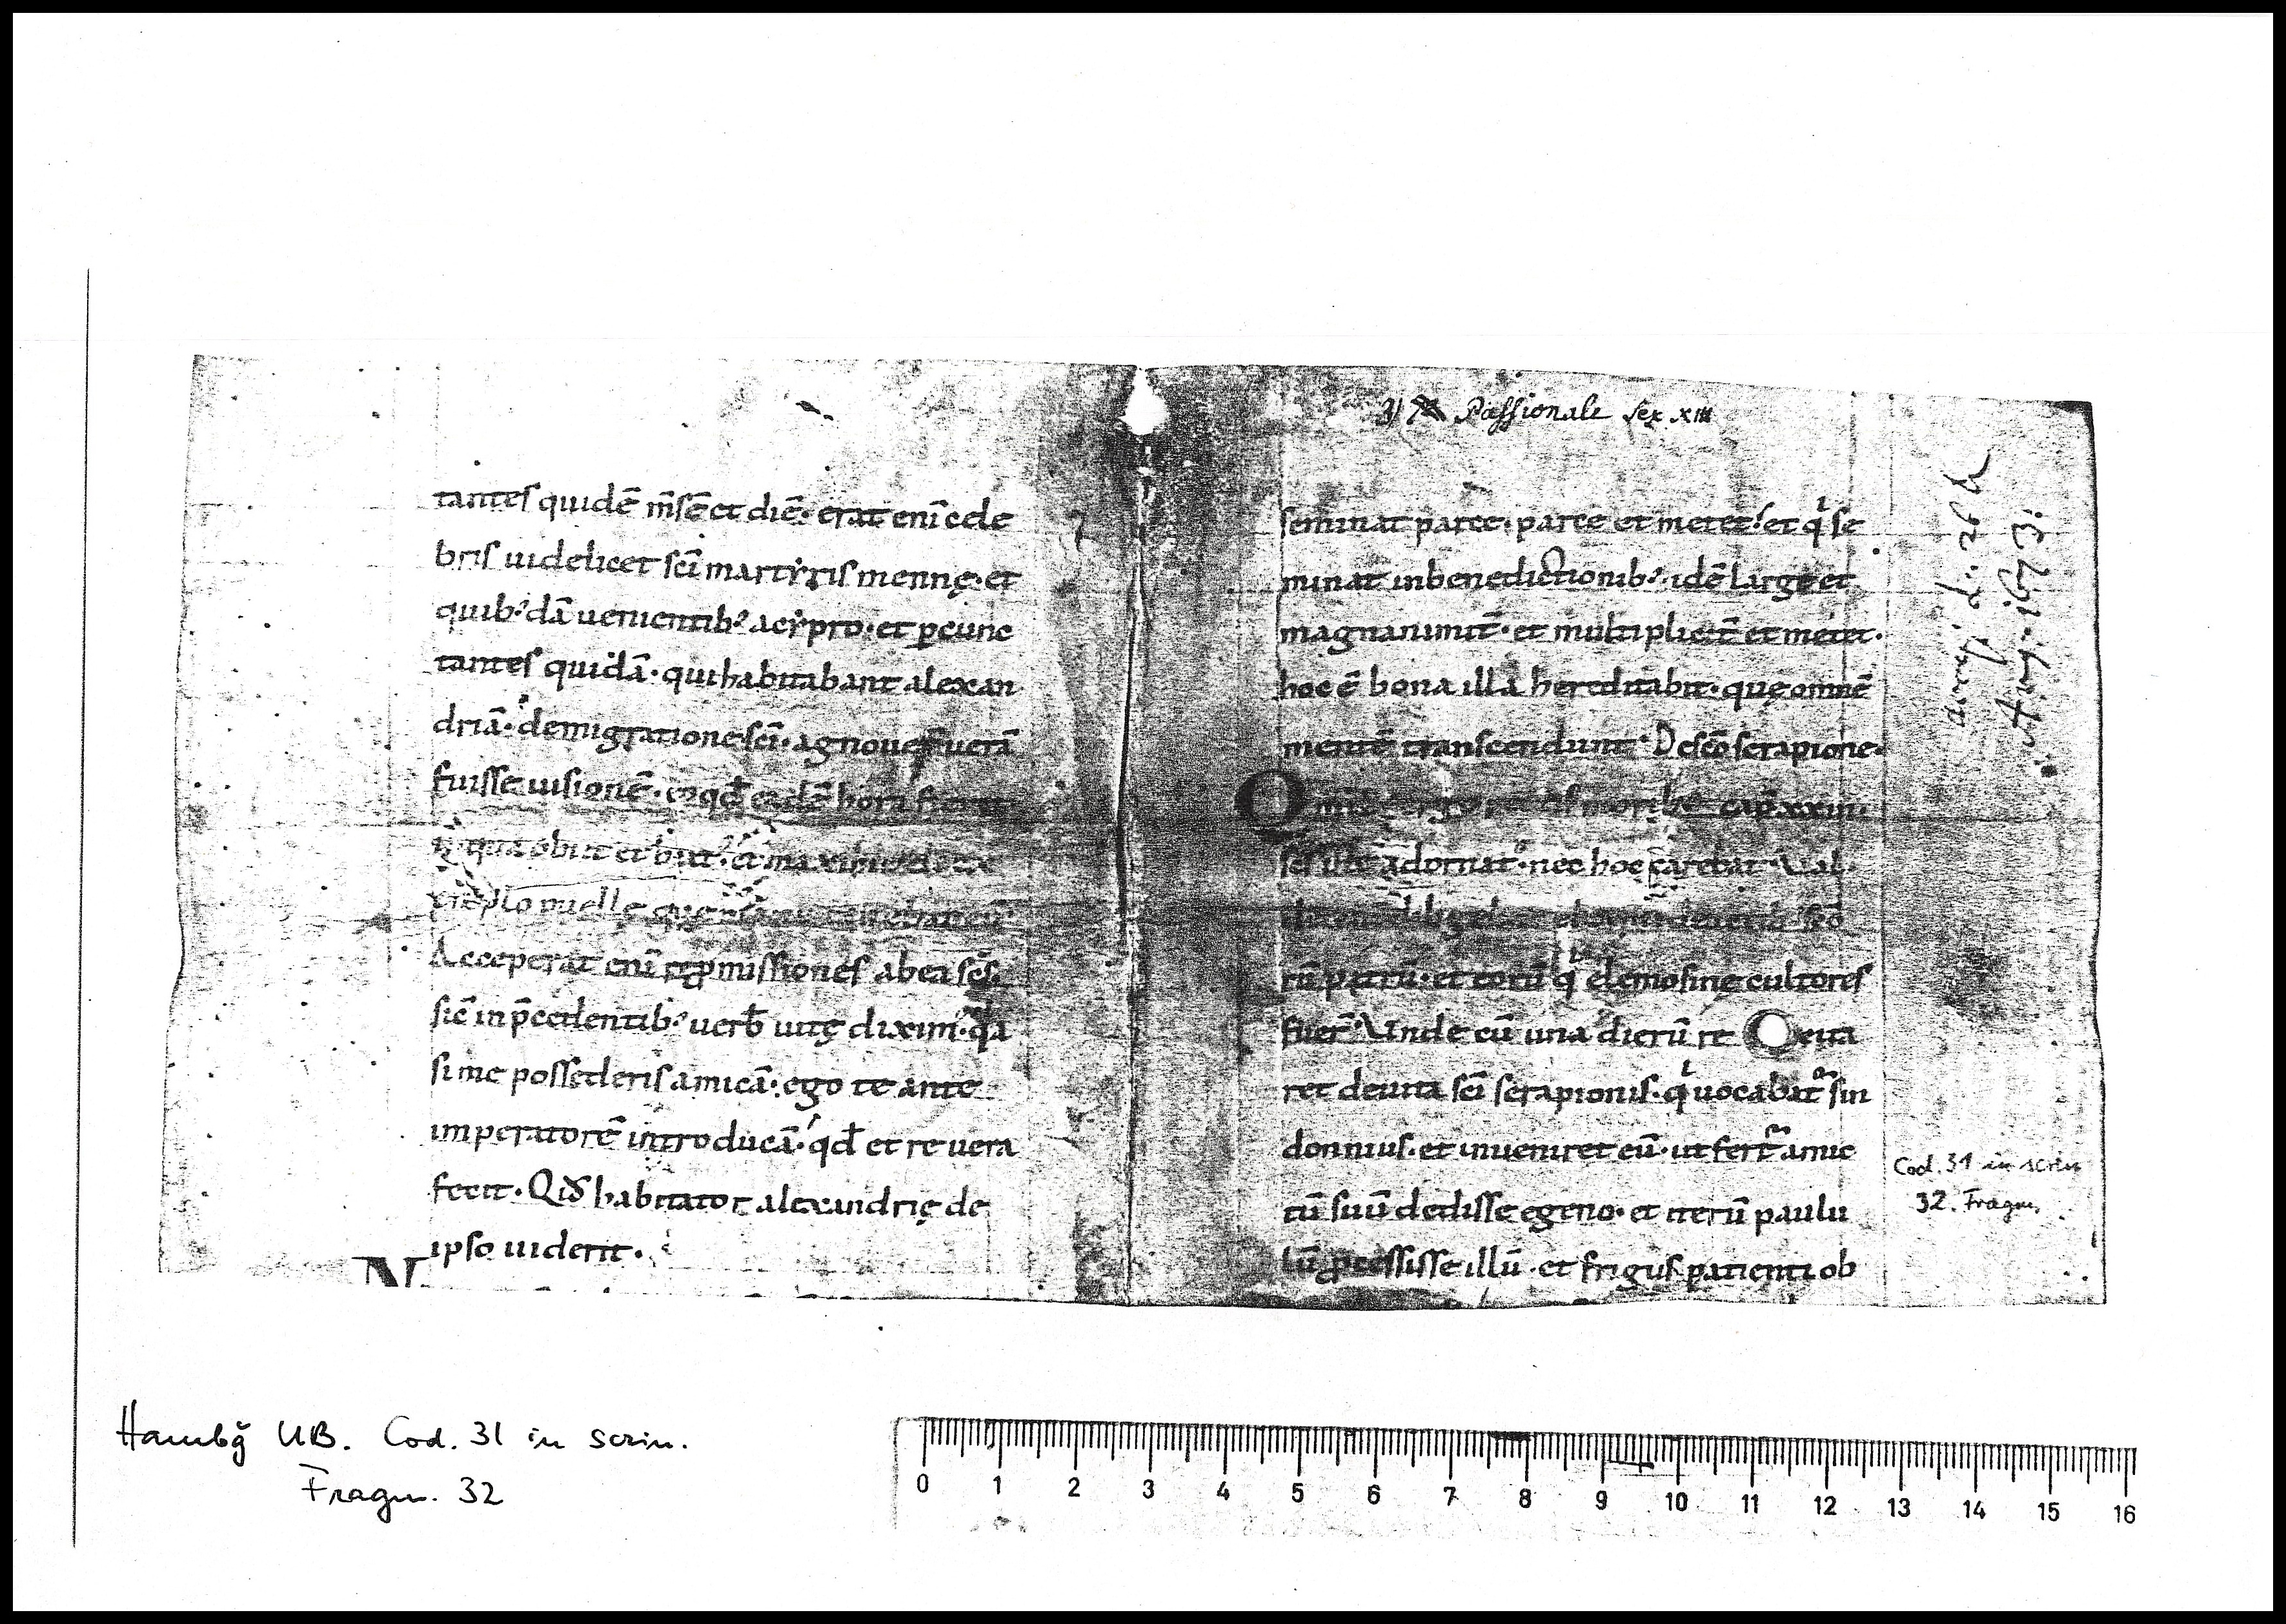 tantes quidē m̄sē et diē· erat enī cele
bris uidelicet sc̄i martẏris mennę· et
quib᾽dā uenientib᾽ acẏpro· et ꝑcunc
tantes quidā· qui habitabant alexan
driā· demigratione sc̄i· agnouef uerā
fuisse uisionē· eo qd̄ eadē hora fuerit
qua obiit et
puelle
Acceperat enī repmissiones ab ea sc̄s·
sic̄ in p̄cedentib᾽ uerb̄ uitę dixim᾽· qa
si me possederis amicā· ego te ante
imperatorē introducā· qd̄ et re uera
fecit· Qid habitator alexandrię de
ipso uiderit·
N
3) Passionale sex. XIII
seminat parce· parce et metet· et qi se
minat in benedictionib᾽· idē large et
magnanimit̄· et multiplicit̄ et metet·
hoc ē bona illa hereditabit· quę omnē
mentē transcendunt· De sc̄o serapione·
O cap̄ xxiii·
adornat᾽· nec hoc carebat· Ual

rū patrū· et eorū qi elemosinę cultores
fuer̄· Unde cū una dierū re euia
ret deuita sc̄i serapionis· qi uocabat̄ sin
donnius· et inueniret eū· ut fert̄ amic
tū suū dedisse egeno· et iterū paulu
lū ꝓcessisse illū· et frigus patienti ob
d. 26
Aug. 1673.
Cod. 31 in scrin
32. Fragm.
Hambg̃ UB. Cod. 31 in scrin.
Fragm. 32
0 1 2 3 4 5 6 7 8 9 10 11 12 13 14 15 16